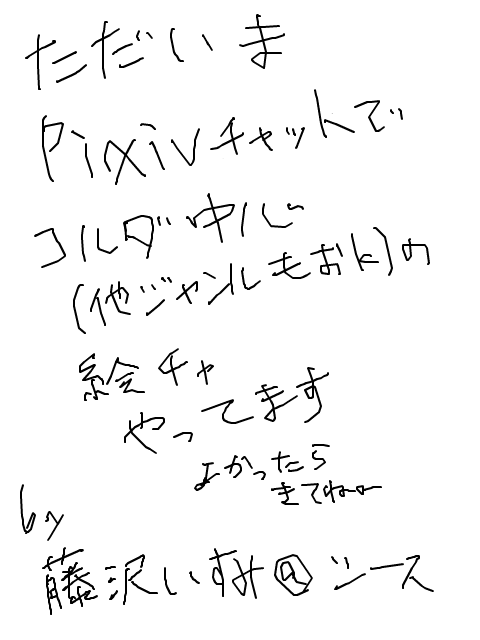 ただいま
Pixivチャットで
コルダ中心
(他ジャンルもおk)の
絵チャ
やってます
よかったら
きてねー
by
藤沢いずみ@シース